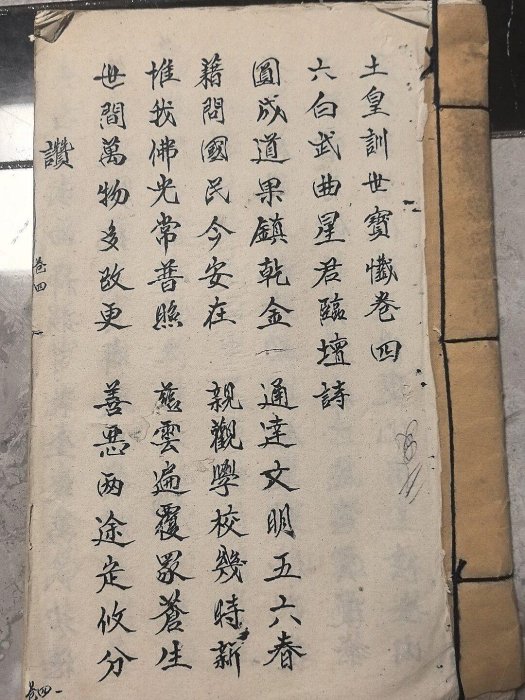 土皇訓世寶懺卷四
六白武曲星君臨壇詩
圓成道果鎮乾金　通達文明五六春
藉問國民今安在　親觀學校幾時新
惟我佛光常普照　慈雲遍覆眾蒼生
世間萬物多改更　善惡两途定攸分
讚
卷四
卷四